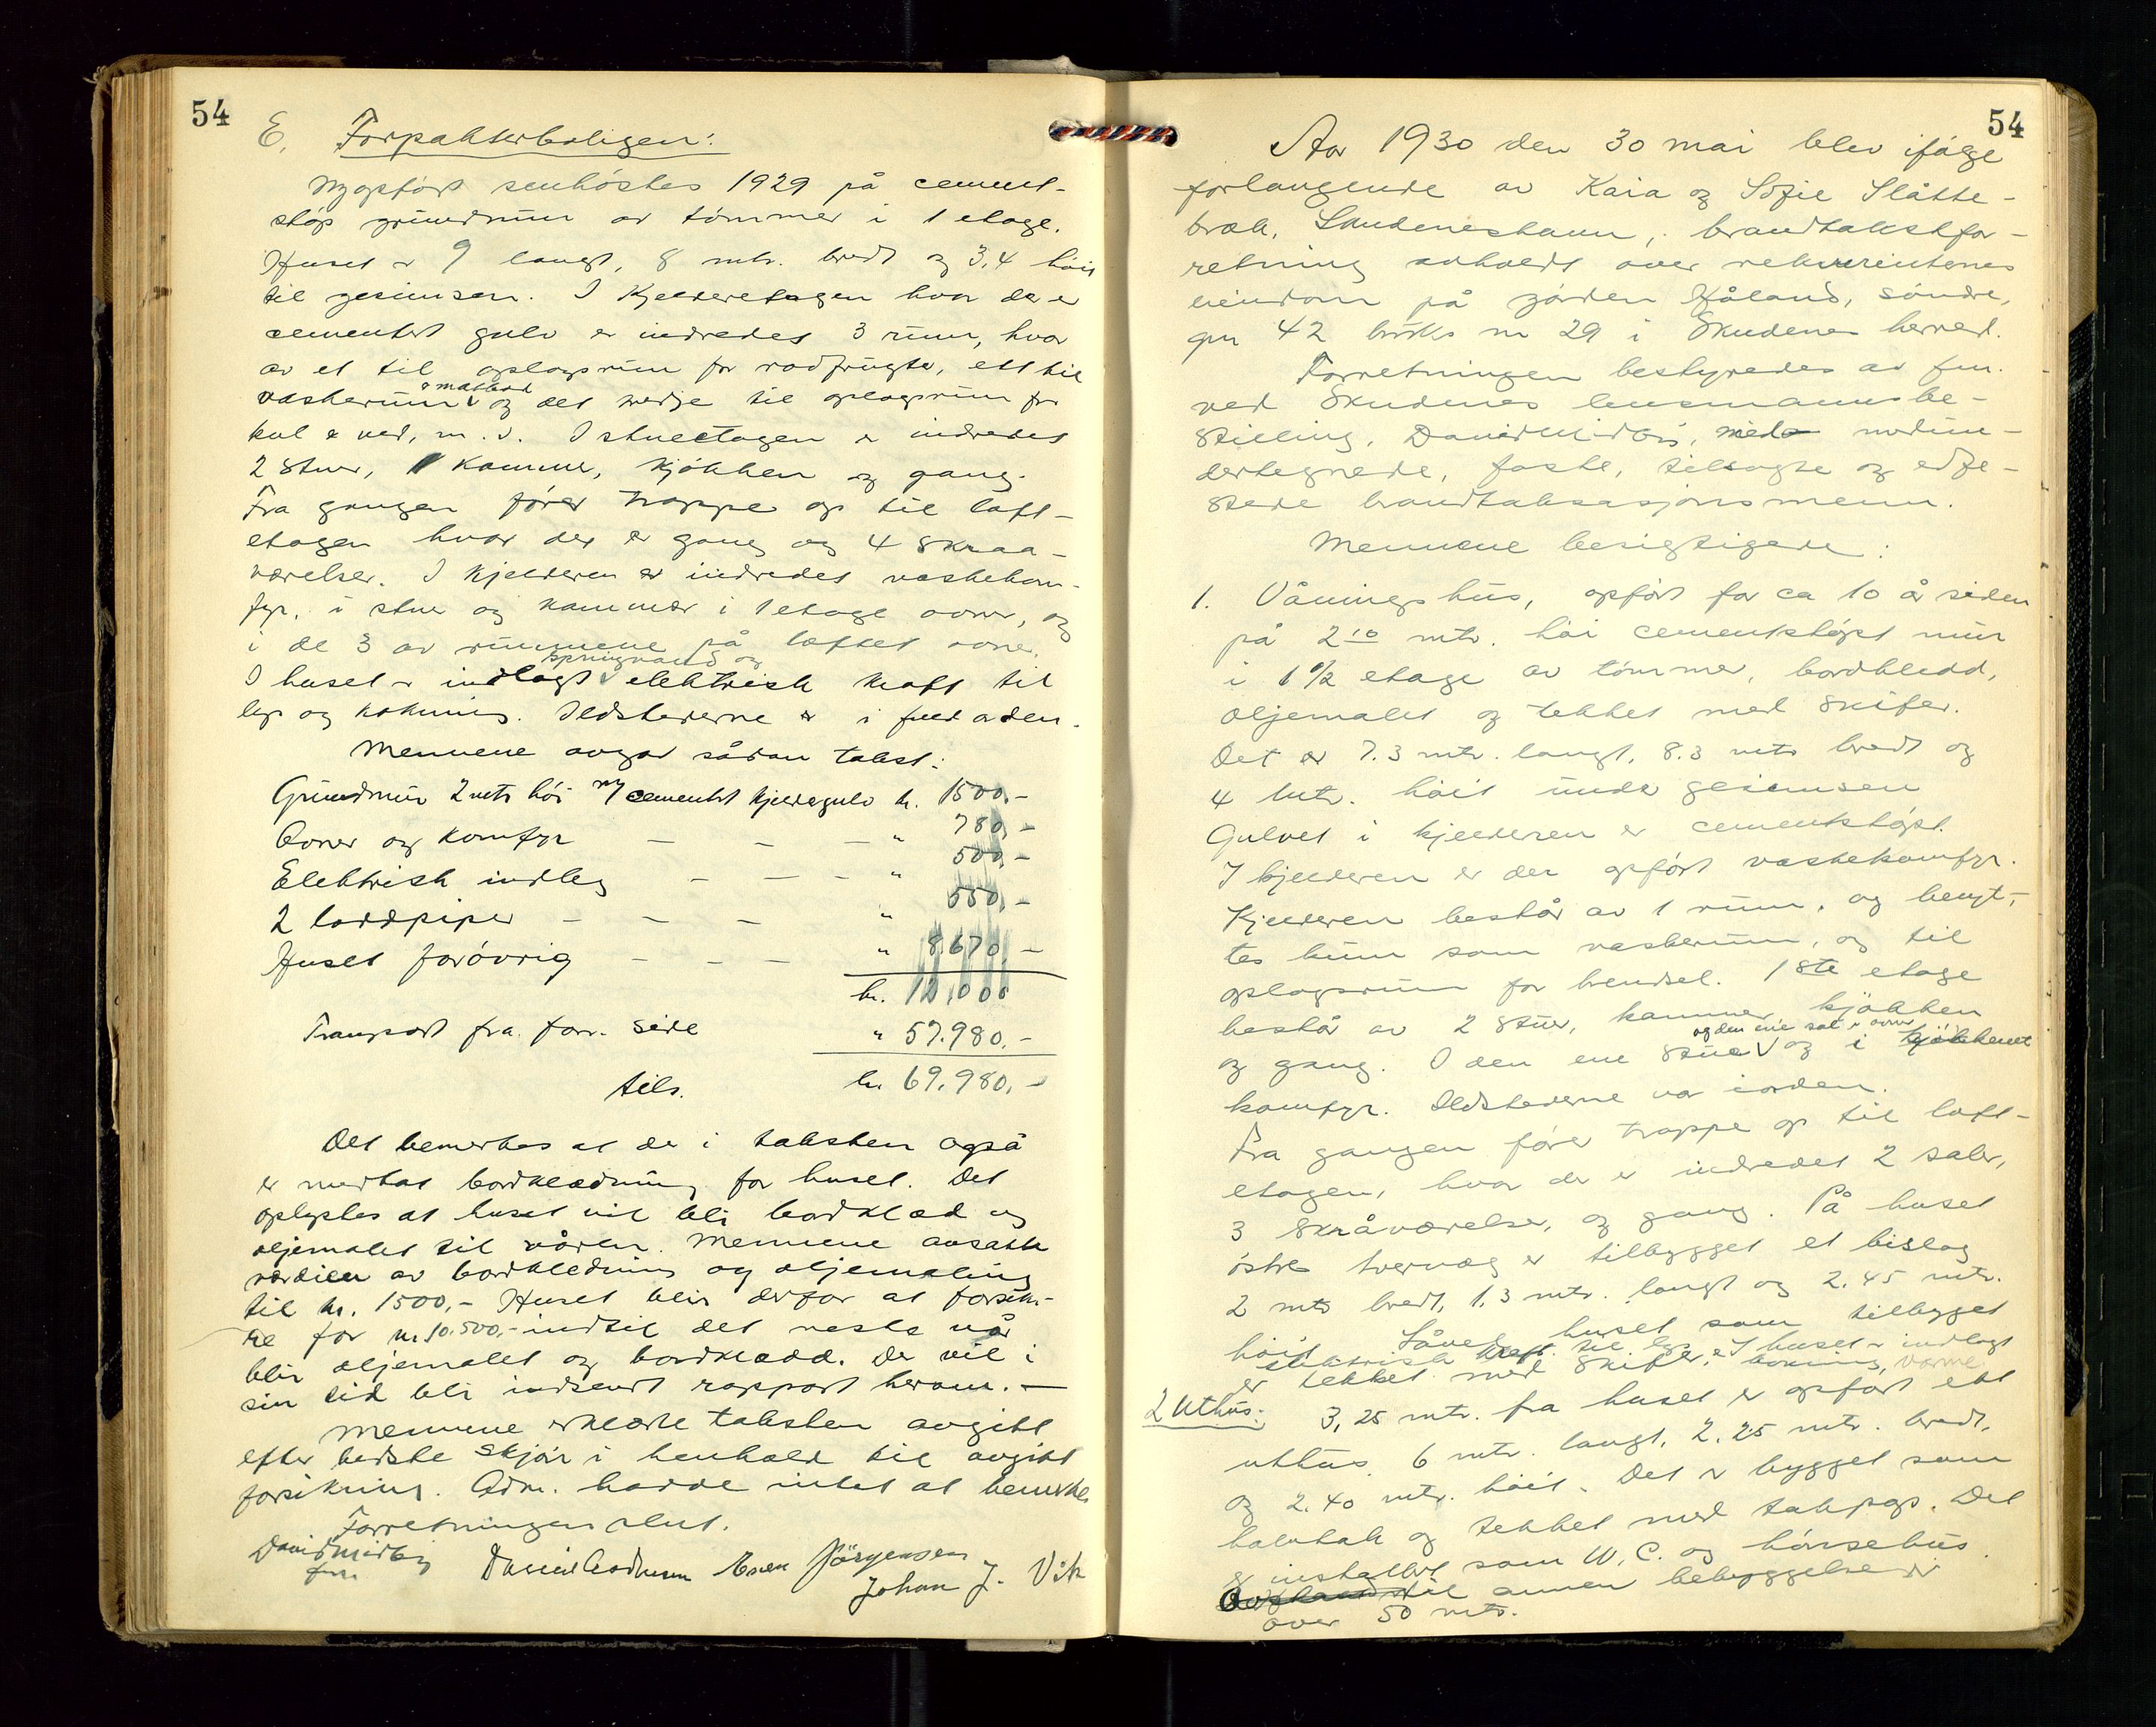 54
E. Forpakterboligen:
Nyopført senhøstes 1929 på cement-
støp grundmur av tømmer i 1 etage.
Huset er 9 langt, 8 mtr. bredt og 3,4 høit
til gesimsen. I Kjelderetagen hvor der er
cementert gulv er indredet 3 rum, hvor
av et til oplagsrum for rodfrugter, ett til
vaskerum & matbod og det tredje til oplagsrum for
kul & ved, m.v. I stueetagen er indredet
2 stuer, 1 kammer, kjøkken og gang.
Fra gangen fører trappe op til loft-
etagen hvor der er gang og 4 skraa-
værelser. I kjelderen er indredet vaskekom-
fyr, i stuer og kammer i 1 etage ovner, og
i de 3 av rummene på loftet ovne.
I huset er indlagt springvand og elektrisk kraft til
lys og kokning. Ildstederne er i fuld orden.
Mennene avgav sådan takst:
Grundmur 2 mtr høi m/ cementert kjeldergulv kr. 1500,-
Ovner og komfyr - - - " 780,-
Elektrisk indleg - - - " 500,-
2 loddpiper - - - " 550,-
Huset forøvrig - - - " 8.670,-
kr. 12,000
Transport fra forr. side " 57.980,-
tils. kr 69.980,-
Det bemerkes at der i taksten også
er medtat bordklædning for huset. Det
oplystes at huset vil bli bordklæd og
oljemalet til våren. Mennene ansatte
værdien av bordkledning og oljemaling
til kr. 1500,- Huset blir derfor at forsik-
re for kr 10.500,- indtil det neste vår
blir oljemalet og bordklædd. Der vil i
sin tid bli indsendt rapport herom. -
Mennene erklærte taksten avgitt
efter bedste skjøn i henhold til avgitt
forsikring. Adm. hadde intet at bemerke
Forretningen slut.
David Midbø Daniel Andersen Enen Jørgensen
fm. Johan J. Vik
54
Aar 1930 den 30 mai blev ifølge
forlangende av Kaia og Sofie Slåtte-
bræk, Skudeneshavn, brandtakstfor-
retning avholdt over rekvirentenes
eiendom på gården Håland, søndre,
gnr 42 bruks nr 29 i Skudenes herred.
Forretningen bestyredes av fm.
ved Skudenes lensmannsbe-
stilling, David Midbø, med nedun-
dertegnede, faste, tilsagte og edfe-
stede brandtaksasjonsmenn.
Mennene besigtigede:
1. Våningshus, opført for ca 10 år siden
på 2 10 mtr. høi cementstøpt mur
i 1 1/2 etage av tømmer, bordkledd,
oljemalet og tekket med skifer.
Det er 7.3 mtr. langt, 8.3 mtr bredt og
4 mtr. høit under gesimsen
Gulvet i kjelderen er cementstøpt.
I kjelderen er der opført vaskekomfyr.
Kjelderen består av 1 rum, og benyt-
tes kun som vaskerum, og til
oplagsrum for brendsel. 1ste etage
består av 2 stuer, kammer, kjøkken
og gang. I den ene stue og den ene sal er ovner og i kjøkkenet
komfyr. Ildstederne var iorden.
Fra gangen fører trappe op til loft-
etagen, hvor der er indredet 2 saler,
3 skråværelser, og gang. På huset
østre tvervæg er tilbygget et bislag
2 mtr bredt, 1.3 mtr. langt og 2.45 mtr.
høit. Såvel huset som tilbygget
er tekket med skifer. I huset er indlagt
elektrisk kraft til lys, kokning, varme
2 Uthus: 3,25 mtr. fra huset er opført ett
uthus 6 mtr. langt, 2.25 mtr. bredt,
og 2.40 mtr. høit. Det er bygget som
halvtak og tekket med takpap. Det
er installert som W.C. og hønsehus.
Avstand til annen bebyggelse er
over 50 mtr.